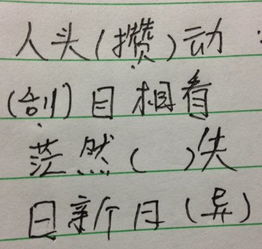 人头(攒)动
(刮)目相看
茫然( )失
日新个月(异)